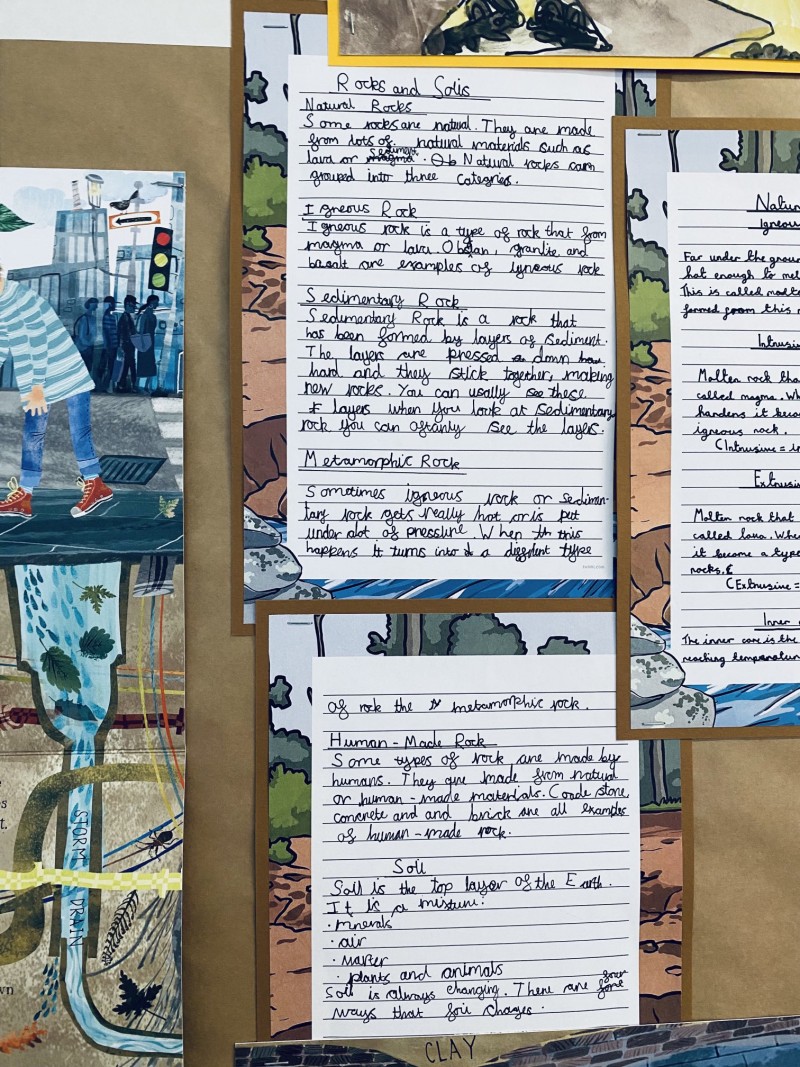 Rocks and Solis
Natural Rocks
Some rocks are natural. They are made
from lots of natural materials such as
lava or sediment. Natural rocks can
grouped into three categries.
Igneous Rock
Igneous rock is a type of rock that from
magma or lava. Obsian, granite and
basalt are examples of igneous rock
Sedimentary Rock
Sedimentary Rock is a rock that
has been formed by layers of sediment.
The layers are pressed down
hard and they stick together, making
new rocks. You can usally see these
layers when you look at sedimentary
rock you can oftanly see the layers.
Metamorphic Rock
Sometimes igneous rock or sedimen-
tary rock gets really hot or is put
under alot of pressure. When this
happens it turns into a diffrent type
of rock the metamorphic rock.
Human-Made Rock
Some types of rock are made by
humans. They are made from natual
or human-made materials. Coade stone,
concrete and and brick are all examples
of human-made rock.
Soil
Soil is the top layer of the Earth.
It is a mixture:
· minerals
· air
· warter
· plants and animals
Soil is always changing. There are four
ways that soil chages.
Natur
Igneou
Far under the groun
hot enough to mel
This is called molte
formed from this r
Intrusiv
Molten rock tha
called magma. Wh
hardens it becom
igneous rock.
(Intrusive = in
Extrusiv
Molten rock that
called lava. When
it become a type
rocks.
(Extrusive =
Inner
The inner core is the
reaching temperatur
STORM DRAIN
t.
wn
CLAY